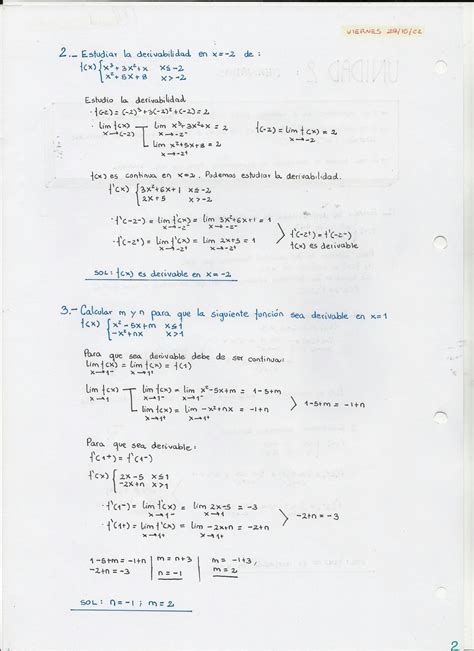 VIERNES 28/10/22
2.- Estudiar la derivabilidad en x=-2 de:
f(x) { x³+3x²+x x≤-2
x²+5x+8 x>-2
Estudio la derivabilidad
· f(-2) = (-2)³+3(-2)²+(-2) = 2
· lim f(x) x→(-2) lim x³+3x²+x = 2 x→-2⁻
lim x²+5x+8 = 2 x→-2⁺
f(-2) = lim f(x) = 2 x→-2
f(x) es continua en x=2. Podemos estudiar la derivabilidad.
f'(x) { 3x²+6x+1 x≤-2
2x+5 x>-2
· f'(-2⁻) = lim f'(x) = lim 3x²+6x+1 = 1 x→-2⁻ x→-2⁻
· f'(-2⁺) = lim f'(x) = lim 2x+5 = 1 x→-2⁺ x→-2⁺
f'(-2⁺) = f'(-2⁻)
f(x) es derivable
SOL: f(x) es derivable en x=-2
3.- Calcular m y n para que la siguiente función sea derivable en x=1
f(x) { x²-5x+m x≤1
-x²+nx x>1
Para que sea derivable debe de ser continua:
lim f(x) = lim f(x) = f(1)
x→1⁻ x→1⁺
lim f(x) x→1 lim f(x) = lim x²-5x+m = 1-5+m x→1⁻ x→1⁻
lim f(x) = lim -x²+nx = -1+n x→1⁺ x→1⁺
1-5+m = -1+n
Para que sea derivable:
f'(1⁺) = f'(1⁻)
f'(x) { 2x-5 x≤1
-2x+n x>1
· f'(1⁻) = lim f'(x) = lim 2x-5 = -3 x→1⁻ x→1⁻
· f'(1⁺) = lim f'(x) = lim -2x+n = -2+n x→1⁺ x→1⁺
-2+n = -3
1-5+m = -1+n | m = n+3 | m = -1+3,
-2+n = -3 | n = -1 | m = 2
SOL: n=-1; m=2
2